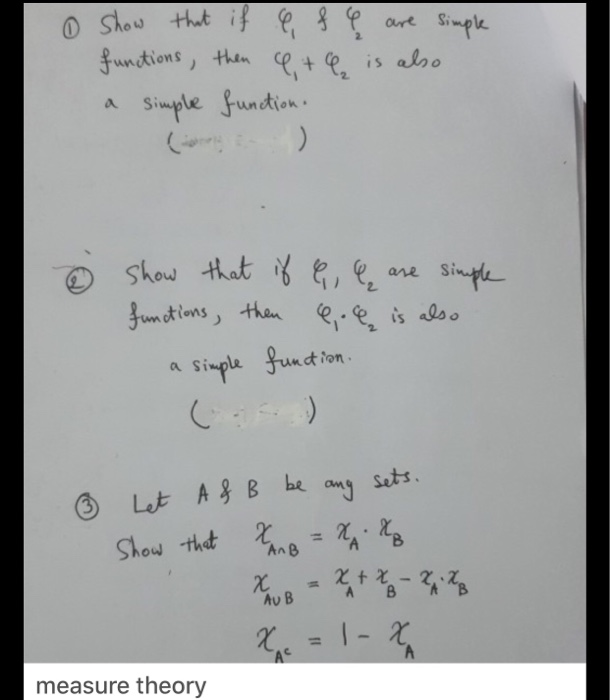 ① Show that if φ₁ & φ₂ are simple
functions, then φ₁ + φ₂ is also
a simple function.
( )
② Show that if φ₁, φ₂ are simple
functions, then φ₁ · φ₂ is also
a simple function.
( )
③ Let A & B be any sets.
Show that χ_{A∩B} = χ_A · χ_B
χ_{A∪B} = χ_A + χ_B - χ_A · χ_B
χ_{Aᶜ} = 1 - χ_A
measure theory